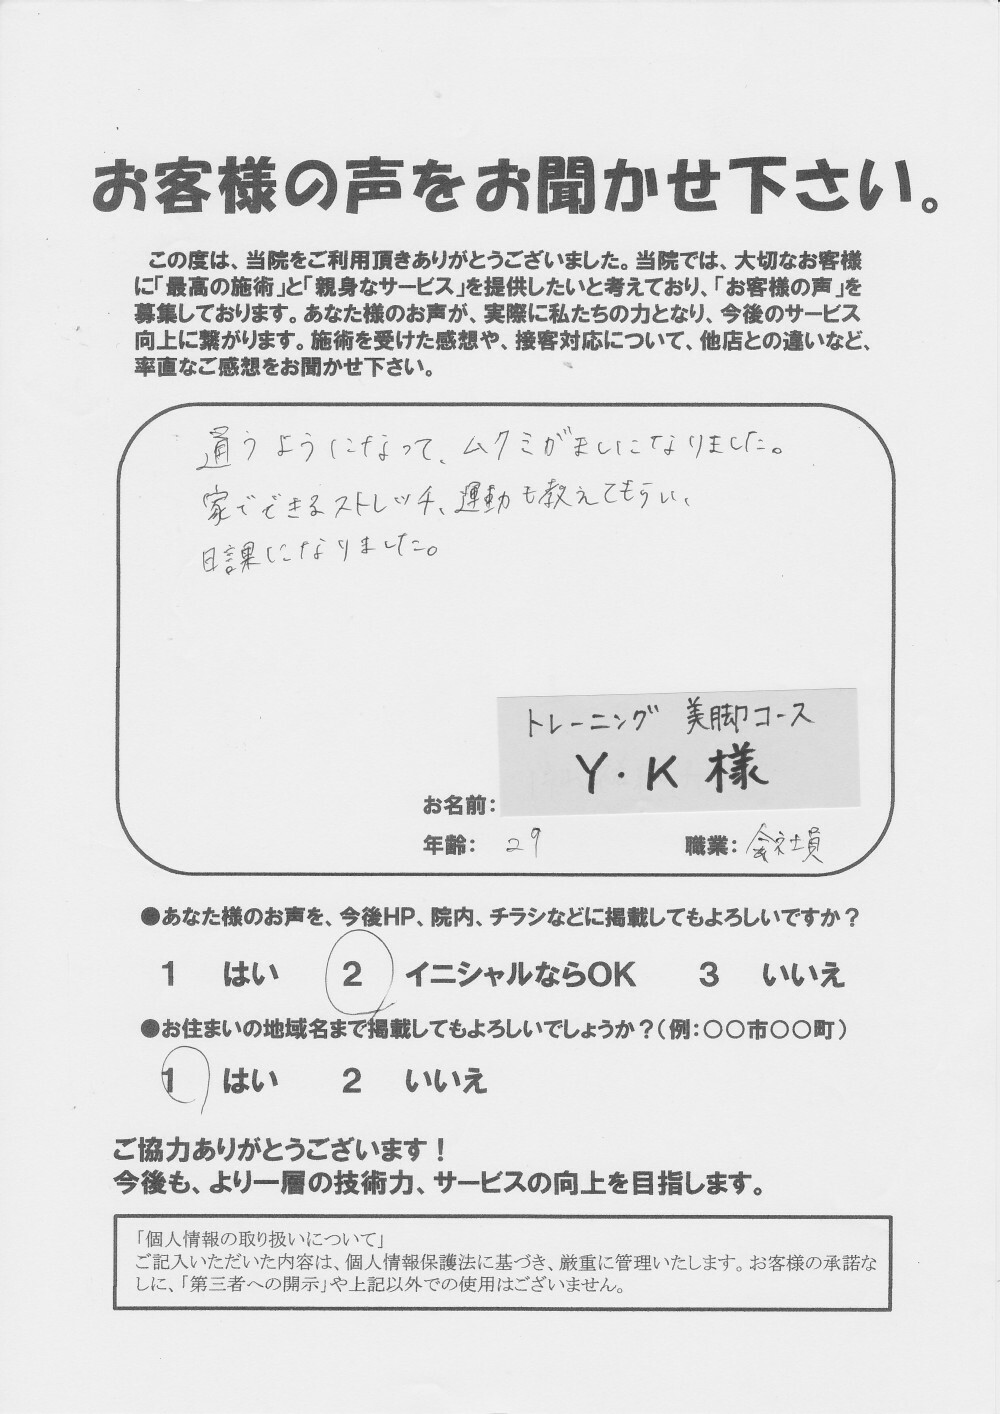 お客様の声をお聞かせ下さい。
この度は、当院をご利用頂きありがとうございました。当院では、大切なお客様
に「最高の施術」と「親身なサービス」を提供したいと考えており、「お客様の声」を
募集しております。あなた様のお声が、実際に私たちの力となり、今後のサービス
向上に繋がります。施術を受けた感想や、接客対応について、他店との違いなど、
率直なご感想をお聞かせ下さい。
通うようになって、ムクミがましになりました。
家でできるストレッチ、運動も教えてもらい、
日課になりました。
トレーニング 美脚コース
お名前: Y・K 様
年齢: 29 職業: 会社員
●あなた様のお声を、今後HP、院内、チラシなどに掲載してもよろしいですか?
1 はい 2 イニシャルならOK 3 いいえ
●お住まいの地域名まで掲載してもよろしいでしょうか?(例:〇〇市〇〇町)
1 はい 2 いいえ
ご協力ありがとうございます!
今後も、より一層の技術力、サービスの向上を目指します。
「個人情報の取り扱いについて」
ご記入いただいた内容は、個人情報保護法に基づき、厳重に管理いたします。お客様の承諾な
しに、「第三者への開示」や上記以外での使用はございません。